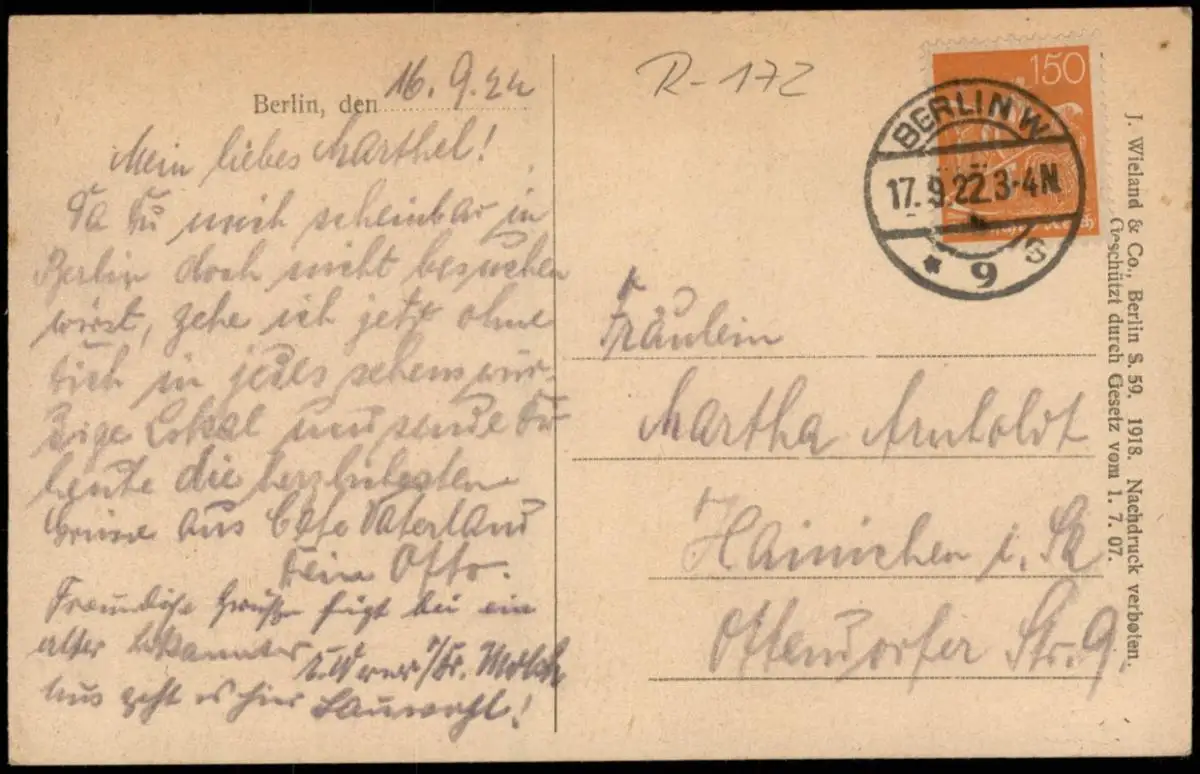 Berlin, den 16. 9. 22
Mein liebes Marthel!
Da Du mich scheinbar in
Berlin doch nicht besuchen
wirst, gehe ich jetzt ohne
Dich in jedes sehenswür-
dige Lokal und sende Dir
heute die herzlichsten
Grüsse aus Cafe Vaterland
Dein Otto.
Freundliche Grüße fügt bei ein
alter Bekannter
uns geht es hier sauwohl!
R-172
150
BERLIN W
17. 9. 22. 3-4 N
* 9
Fräulein
Martha Arnholdt
Hainichen i. Sa
Ottendorfer Str. 9.
J. Wieland & Co., Berlin S. 59. 1918. Nachdruck verboten.
Geschützt durch Gesetz vom 1. 7. 07.